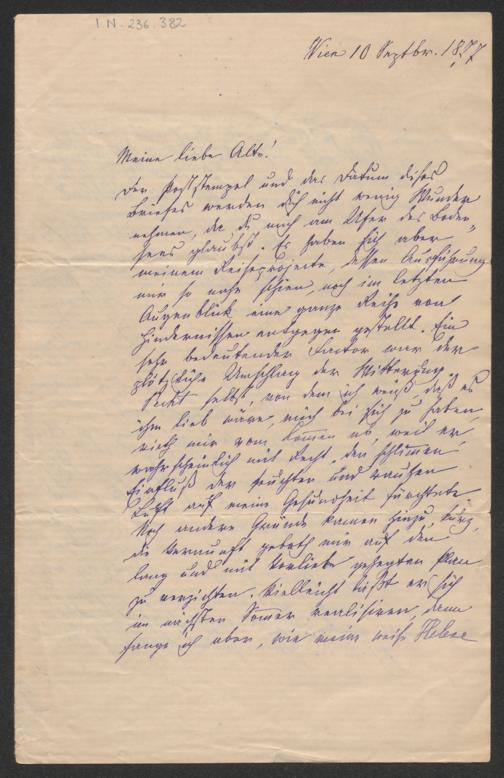 I.N. 236.382
Wien 10 Septbr. 1877
Meine liebe Alte!
Der Poststempel und das Datum dieses
Briefes werden dich nicht wenig Wunder
nehmen, da du mich am Ufer des Boden=
sees glaubst. Es haben sich aber
meinem Reiseprojecte, dessen Ausführung
mir so nahe schien, noch im letzten
Augenblick eine ganze Reihe von
Hindernissen entgegen gestellt. Ein
sehr bedeutender Factor war der
plötzliche Umschlag der Witterung.
selbst, von dem ich weiß, daß es
ihm lieb wäre, mich bei sich zu haben,
rieth mir vom Komen ab, weil er,
wahrscheinlich mit Recht, den schlimen
Einfluß der feuchten und rauhen
Luft auf meine Gesundheit fürchtete.
Noch andere Gründe kamen hinzu, kurz,
die Vernunft gebot mir auf den
lang und mit Vorliebe gehegten Plan
zu verzichten. Vielleicht läßt er sich
im nächsten Somer realisiren, dann
fange ich aber, wie meine weise Helene